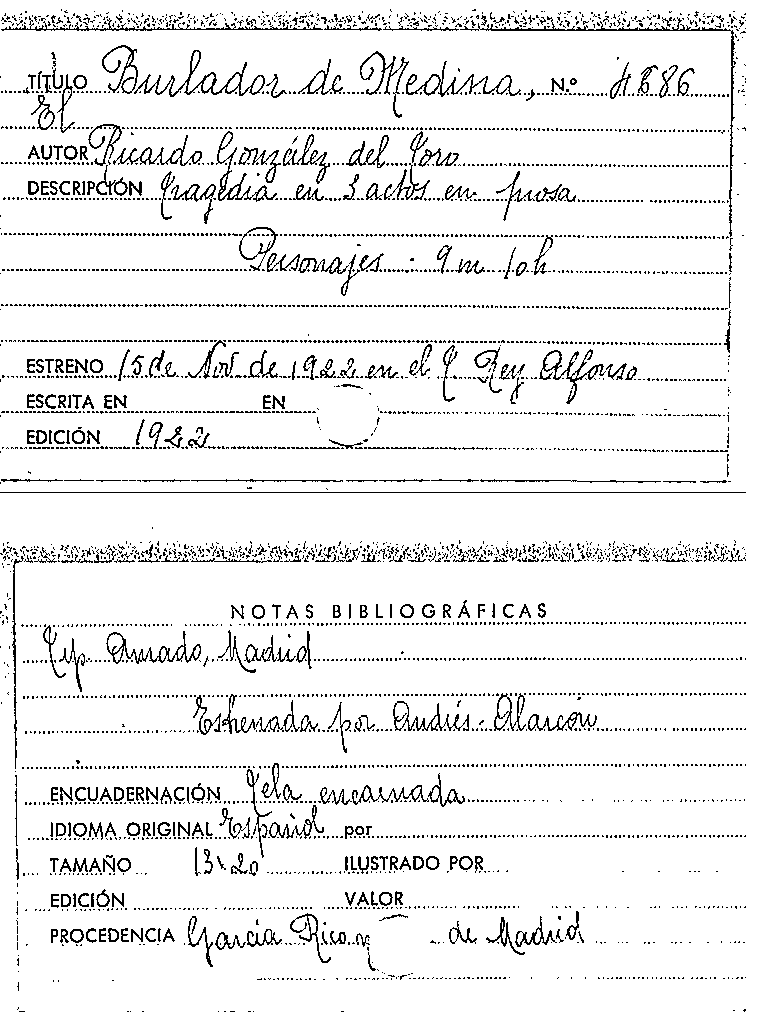 TÍTULO Burlador de Medina, N.º 4686
El
AUTOR Ricardo González del Toro
DESCRIPCIÓN Tragedia en 3 actos en prosa
Personajes : 9 m 10 h
ESTRENO 15 de Nov de 1922 en el T. Rey Alfonso
ESCRITA EN EN
EDICIÓN 1922
NOTAS BIBLIOGRÁFICAS
Tip Amado, Madrid
Estrenada por Andrés-Alarcón
ENCUADERNACIÓN Tela encarnada
IDIOMA ORIGINAL Español por
TAMAÑO 13x20 ILUSTRADO POR
EDICIÓN VALOR
PROCEDENCIA García Rico y de Madrid